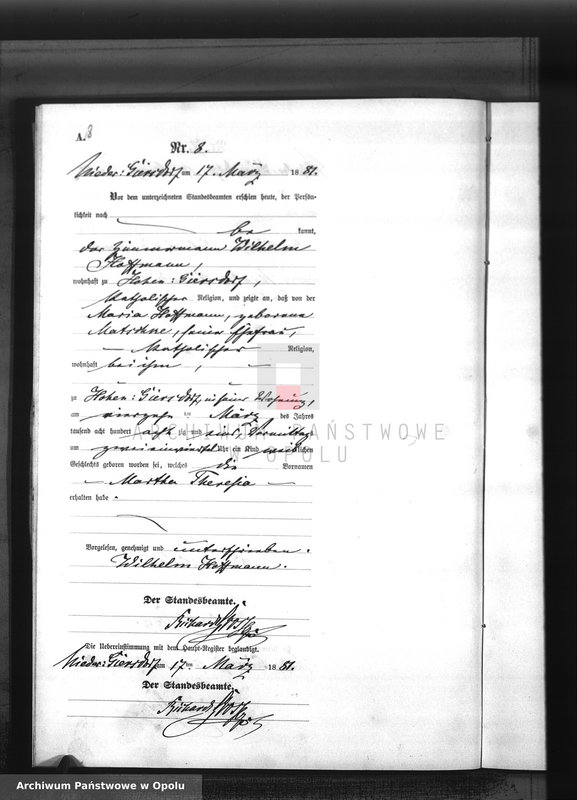 A. 8
Nr. 8.
Nieder-Giersdorf am 17. März 1881.
Vor dem unterzeichneten Standesbeamten erschien heute, der Persön-
lichkeit nach
be kannt,
der Zimmermann Wilhelm
Hoffmann,
wohnhaft zu Hohen-Giersdorf,
katholischer Religion, und zeigte an, daß von der
Maria Hoffmann, geborene
seiner Ehefrau,
katholischer Religion,
wohnhaft bei ihm,
zu Hohen-Giersdorf, in seiner Wohnung,
am vierzehn ten März des Jahres
tausend acht hundert achtzig und eins, Vormittags
um zwei einviertel Uhr ein Kind weiblichen
Geschlechts geboren worden sei, welches die Vornamen
Martha Theresia
erhalten habe.
Vorgelesen, genehmigt und unterschrieben.
Wilhelm Hoffmann.
Der Standesbeamte.
Richard
Die Uebereinstimmung mit dem Haupt-Register beglaubigt.
Nieder-Giersdorf am 17ten März 1881.
Der Standesbeamte.
Richard
ARCHIWUM PAŃSTWOWE
W OPOLU
Archiwum Państwowe w Opolu